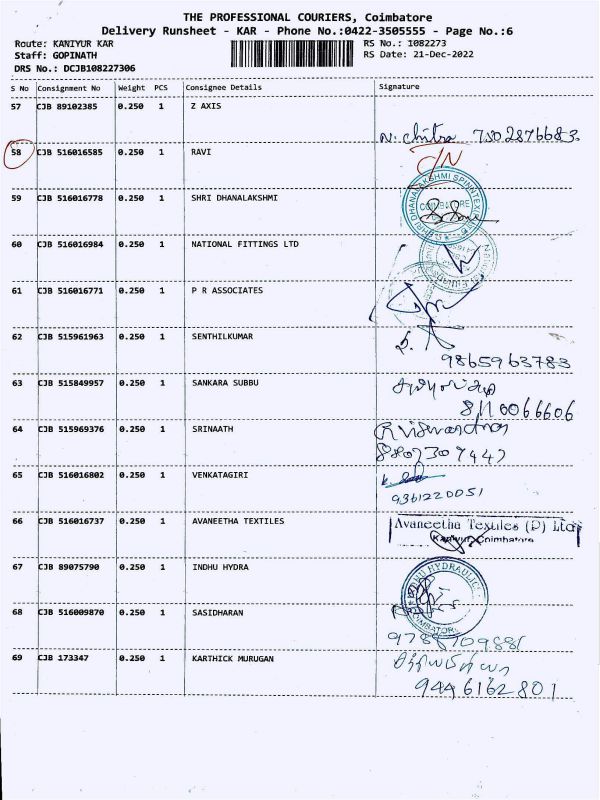 THE PROFESSIONAL COURIERS, Coimbatore
Delivery Runsheet - KAR - Phone No.:0422-3505555 - Page No.:6
Route: KANIYUR KAR
RS No.: 1082273
Staff: GOPINATH
RS Date: 21-Dec-2022
DRS No.: DCJB108227306
S No Consignment No Weight PCS Consignee Details Signature
57 CJB 89102385 0.250 1 Z AXIS
N. Chitra 7502876683
58 CJB 516016585 0.250 1 RAVI
59 CJB 516016778 0.250 1 SHRI DHANALAKSHMI
60 CJB 516016984 0.250 1 NATIONAL FITTINGS LTD
61 CJB 516016771 0.250 1 P R ASSOCIATES
62 CJB 515961963 0.250 1 SENTHILKUMAR
9865963783
63 CJB 515849957 0.250 1 SANKARA SUBBU
8110066606
64 CJB 515969376 0.250 1 SRINAATH
65 CJB 516016802 0.250 1 VENKATAGIRI
9361220051
66 CJB 516016737 0.250 1 AVANEETHA TEXTILES
Avaneetha Textiles (P) Ltd
Kaniyur, Coimbatore
67 CJB 89075790 0.250 1 INDHU HYDRA
68 CJB 516009870 0.250 1 SASIDHARAN
69 CJB 173347 0.250 1 KARTHICK MURUGAN
9446162801